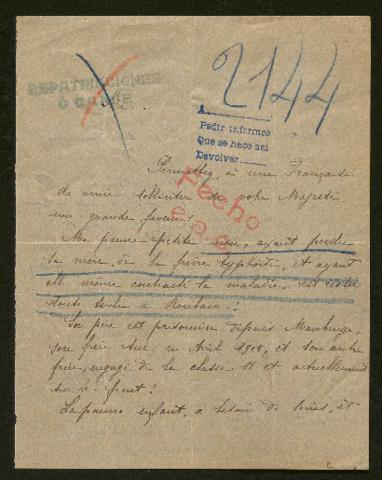 REPATRIACIONES
2144
A
Pedir informes
Que se hace asi
Devolver
Fecho
Sire,
Permettez, à une Française
de venir solliciter de votre Majesté
une grande faveur!
Ma pauvre petite nièce, ayant perdu
sa mère, de la fièvre typhoïde, et ayant
elle même contracté la maladie, est restée
toute seule à Roubaix!
Son père est prisonnier depuis Maubeuge,
son frère tué en Avril 1915, et son autre
frère, engagé de la classe 18 est actuellement
sur le front!
La pauvre enfant, a besoin de soins, et